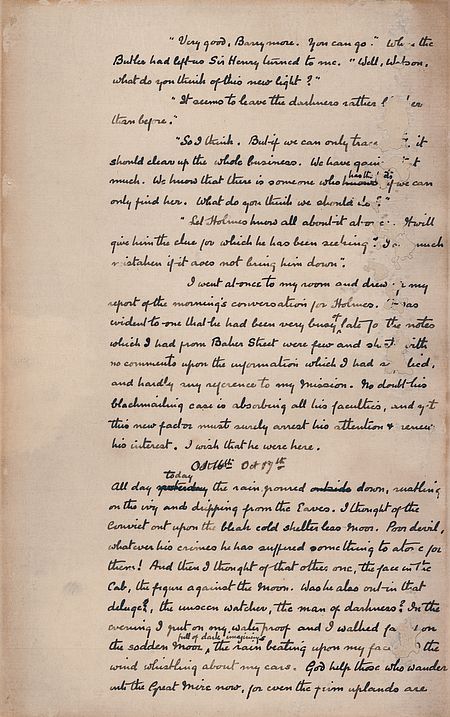 "Very good, Barrymore. You can go." When the
Butler had left us Sir Henry turned to me. "Well, Watson,
what do you think of this new light?"
"It seems to leave the darkness rather
than before."
"So I think. But if we can only trace it
should clear up the whole business. We have gained
much. We know that there is someone who knows has the facts if we can
only find her. What do you think we should do?"
"Let Holmes know all about it at once. It will
give him the clue for which he has been seeking. I am much
mistaken if it does not bring him down".
I went at once to my room and drew up my
report of the morning's conversation for Holmes. It was
evident to me that he had been very busy of late for the notes
which I had from Baker Street were few and short with
no comments upon the information which I had supplied,
and hardly any reference to my Mission. No doubt his
blackmailing case is absorbing all his faculties, and yet
this new factor must surely arrest his attention & renew
his interest. I wish that he were here.
Oct 16th Oct 17th
All day yesterday today the rain poured outside down, rustling
on the ivy and dripping from the Eaves. I thought of the
Convict out upon the bleak cold shelterless Moor. Poor devil,
whatever his crimes he has suffered something to atone for
them! And then I thought of that other one, the face in the
Cab, the figure against the Moon. Was he also out in that
deluge?, the unseen watcher, the man of darkness? In the
evening I put on my waterproof and I walked far on
the sodden Moor, full of dark imaginings, the rain beating upon my face the
wind whistling about my ears. God help those who wander
into the Great Mire now, for even the firm uplands are